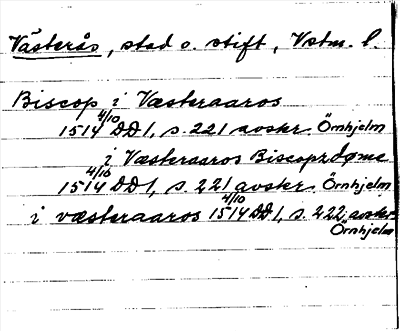 Västerås, stad o. stift, Vstm. l.
Biscop i Væsteraaros
1514 4/10 DD 1, s. 221 avskr. Örnhjelm
i Væsteraaros Biscopzdøme
1514 4/10 DD 1, s. 221 avskr. Örnhjelm
i væsteraaros 1514 4/10 DD 1, s. 222, avskr.
Örnhjelm